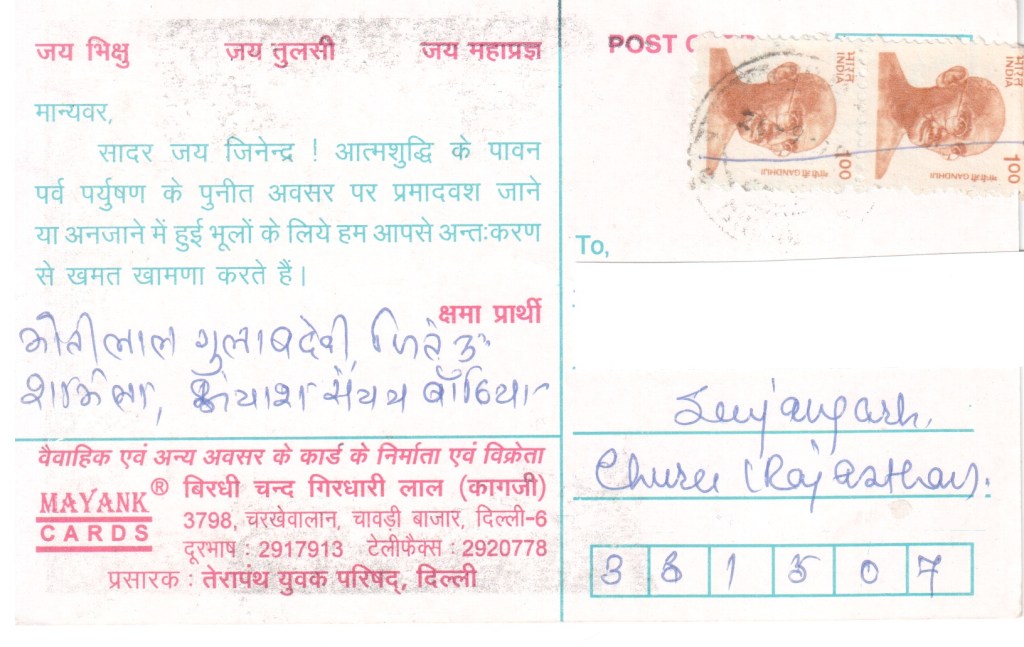 जय भिक्षु जय तुलसी जय महाप्रज्ञ
मान्यवर,
सादर जय जिनेन्द्र ! आत्मशुद्धि के पावन
पर्व पर्युषण के पुनीत अवसर पर प्रमादवश जाने
या अनजाने में हुई भूलों के लिये हम आपसे अन्तःकरण
से खमत खामणा करते हैं।
क्षमा प्रार्थी
मोतीलाल गुलाबदेवी,
बाँठिया
वैवाहिक एवं अन्य अवसर के कार्ड के निर्माता एवं विक्रेता
MAYANK ® बिरधी चन्द गिरधारी लाल (कागजी)
CARDS 3798, चरखेवालान, चावड़ी बाजार, दिल्ली-6
दूरभाष : 2917913 टेलीफैक्स : 2920778
प्रसारक : तेरापंथ युवक परिषद्, दिल्ली
POST
भारत INDIA
100
गांधी GANDHI
भारत INDIA
100
गांधी GANDHI
To,
Sujangarh,
Churu (Rajasthan).
3 3 1 5 0 7